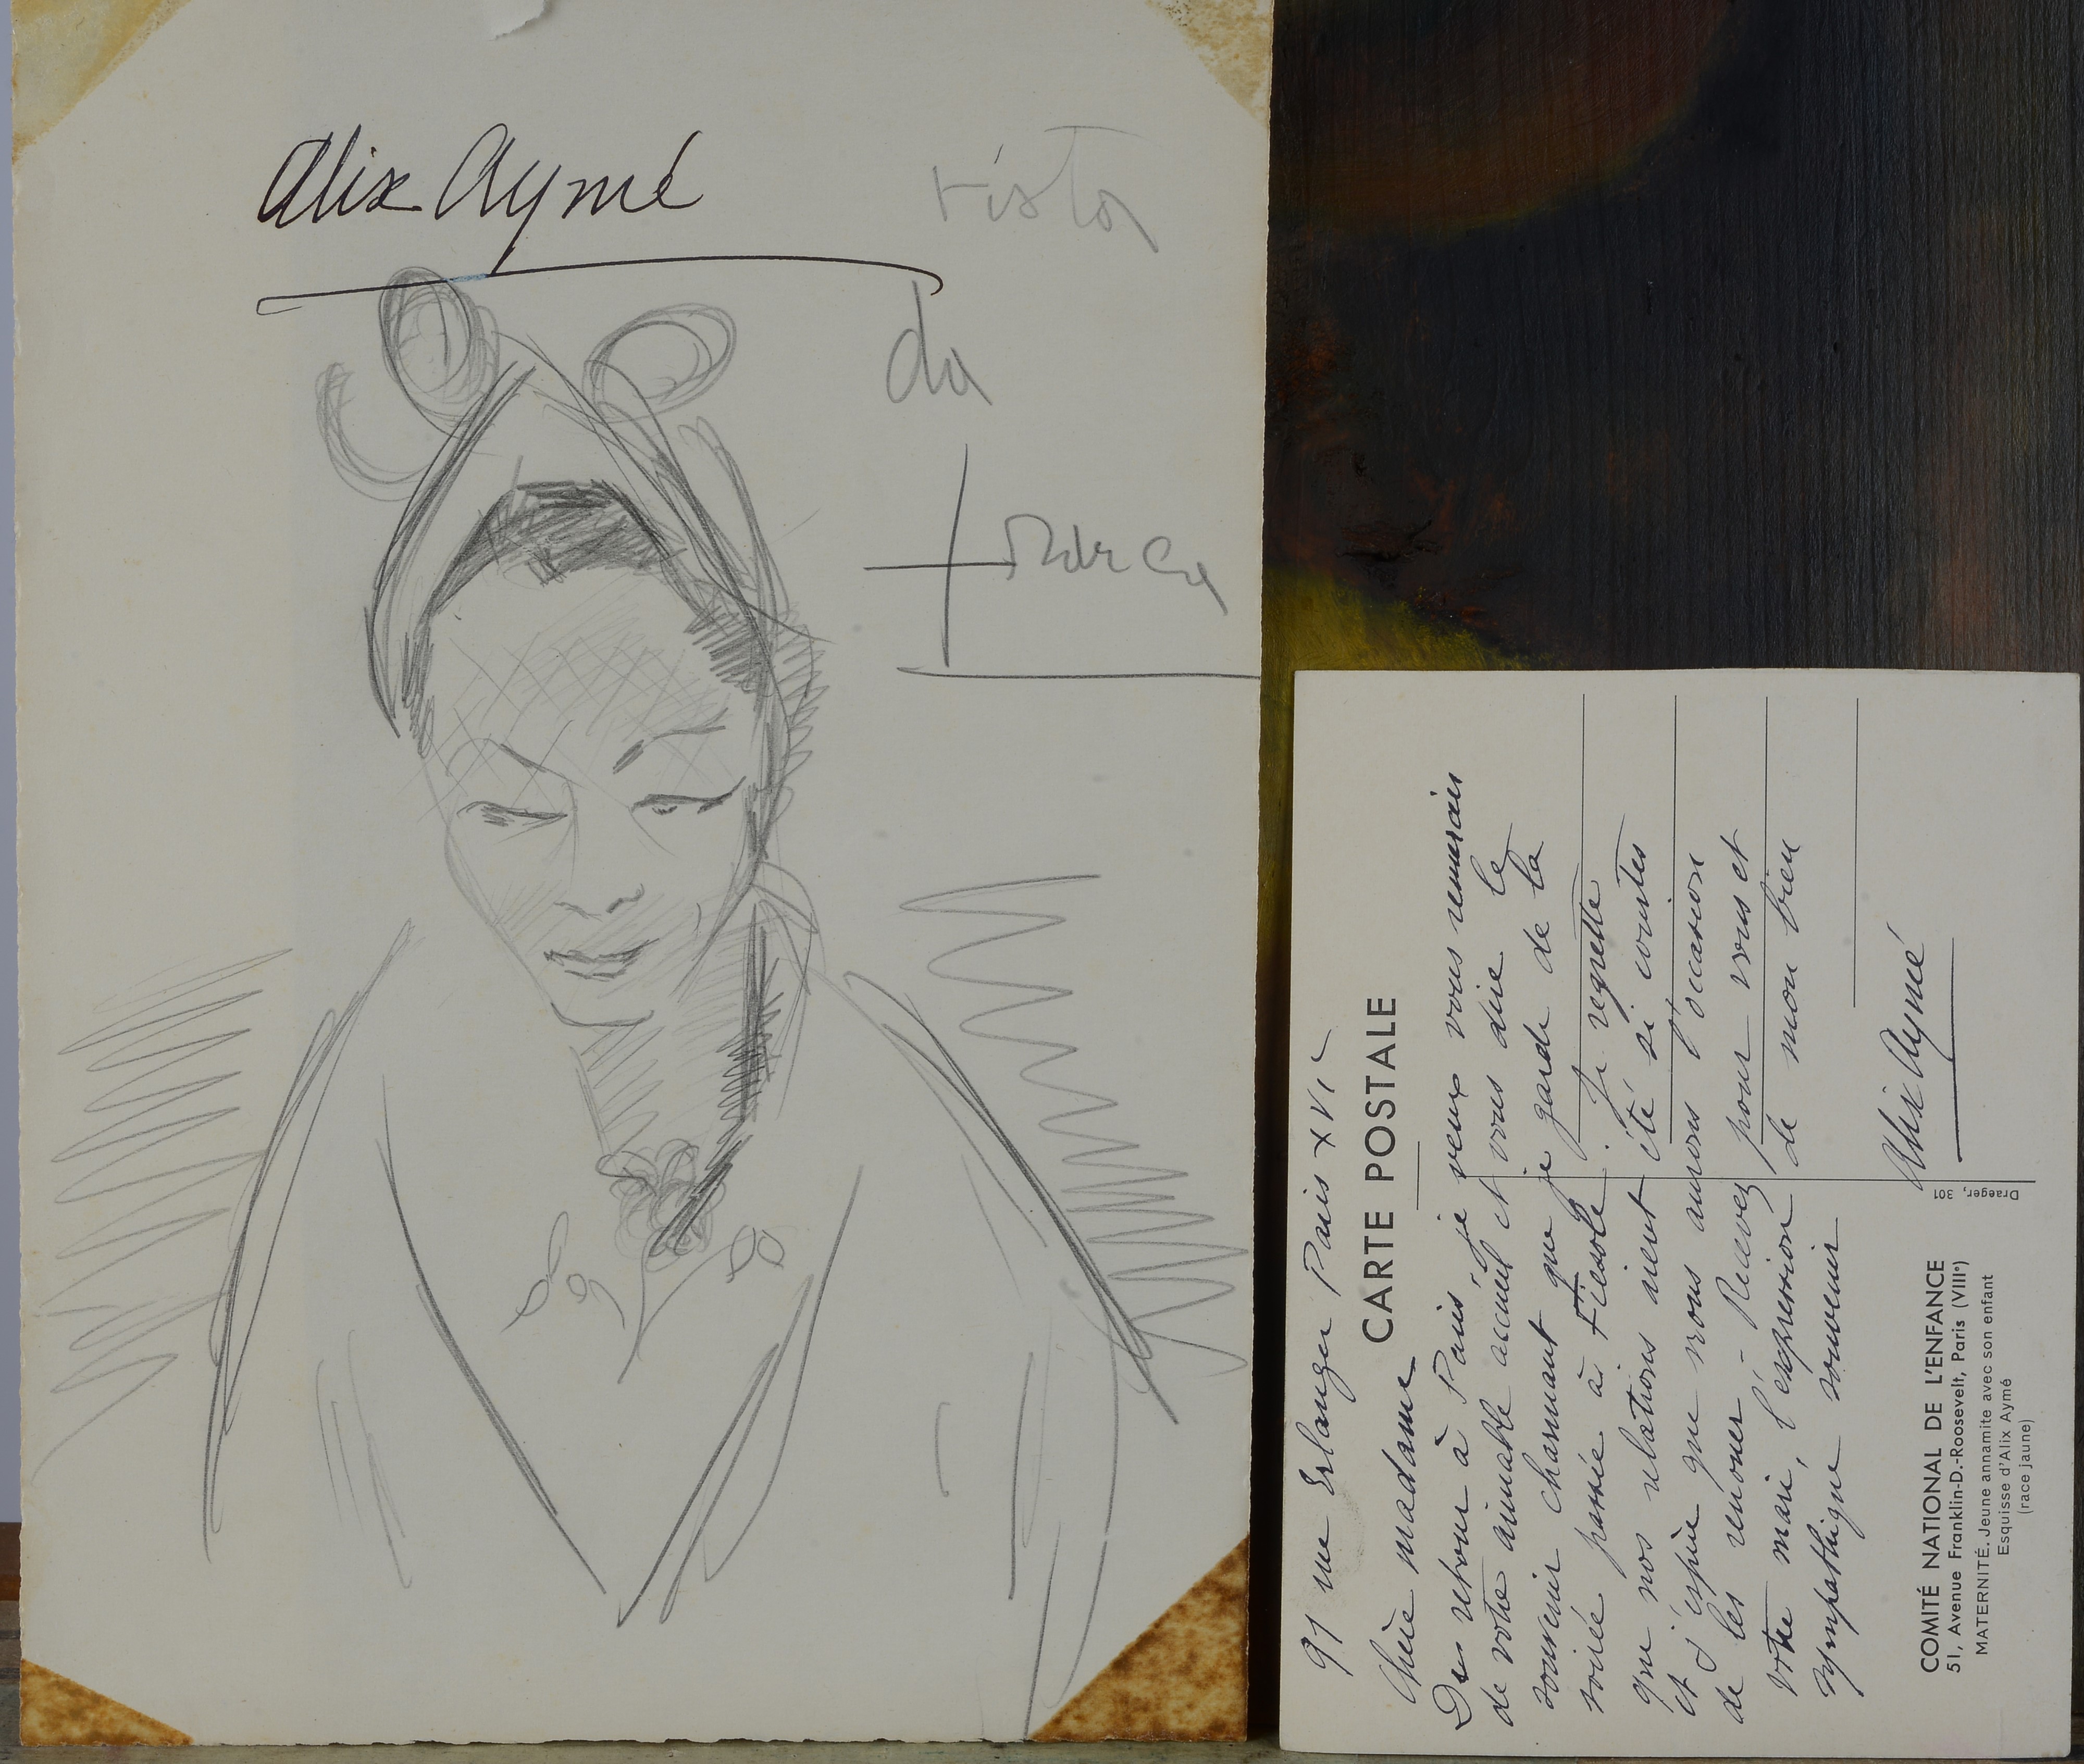 Alix Aymé
vista
da
91 rue Erlanger Paris XVIe
CARTE POSTALE
Chère madame
De retour à Paris, je veux vous remercier
de votre aimable accueil et vous dire le
souvenir charmant que je garde de la
soirée passée à Fiesole. Je regrette
que nos relations aient été si courtes
et j'espère que nous aurons l'occasion
de les renouer - Recevez pour vous et
votre mari, l'expression de mon bien
sympathique souvenir
Alix Aymé
Draeger, 301
COMITÉ NATIONAL DE L'ENFANCE
51, Avenue Franklin-D.-Roosevelt, Paris (VIIIe)
MATERNITÉ. Jeune annamite avec son enfant
Esquisse d'Alix Aymé
(race jaune)